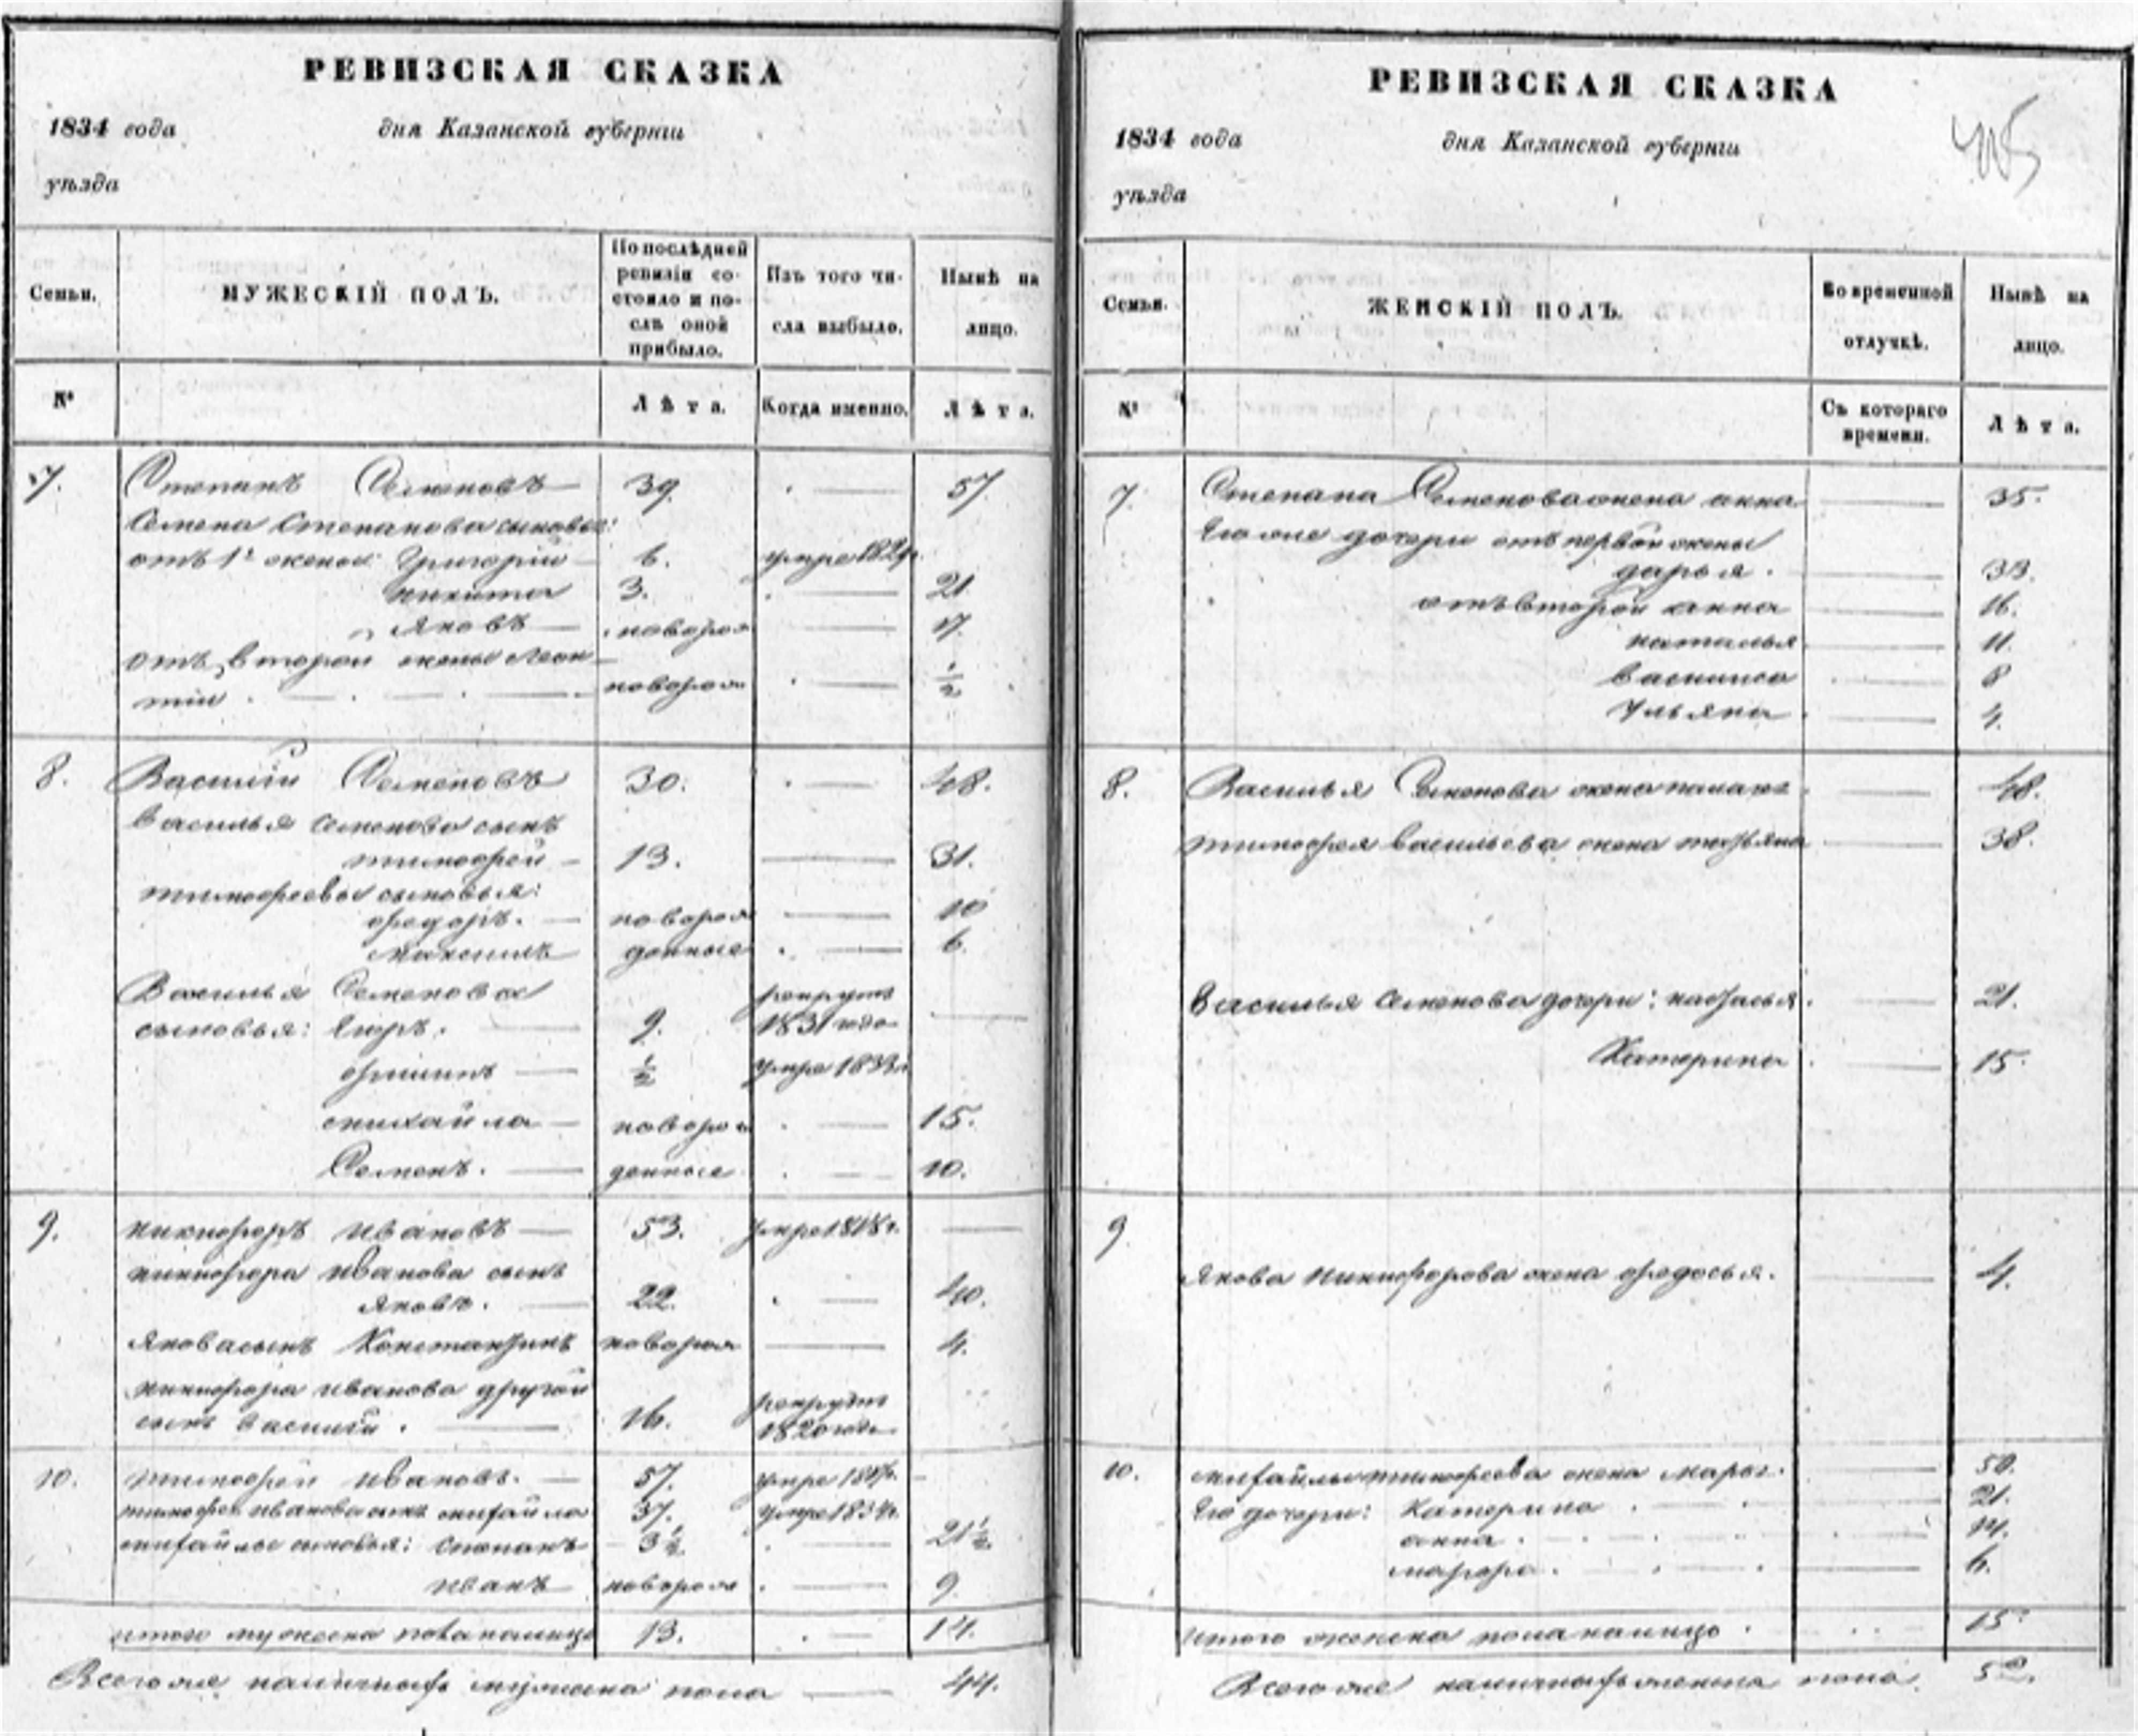 РЕВИЗСКАЯ СКАЗКА
1834 года дня Казанской губернiи
уѣзда
Семьи. МУЖЕСКІЙ ПОЛЪ. По послѣдней ревизіи состояло и послѣ оной прибыло. Изъ того числа выбыло. Нынѣ на лицо.
№ Лѣта. Когда именно. Лѣта.
7. Степанъ Семеновъ 39. 57
Семена Степанова сыновья:
отъ 1й жены Григорій 6. умре
никита 3. 21
Яковъ новорож 17.
отъ второй жены Леон
тій новорож ½
8. Василій Семеновъ 30. 48.
Василья Семенова сынъ
тимофей 13. 31.
тимофеевы сыновья:
федоръ. новорож 10
Максимъ денные 6.
Василья Семенова рекрутъ
сыновья: Егоръ. 9. 1831 года
филипъ ½ умре 1833г
михайла новорож 15.
Семенъ. денные 10.
9. никифоръ Ивановъ 53. умре 1818г.
никифора Иванова сынъ
Яковъ. 22. 40.
Якова сынъ Константинъ новорож 4.
никифора Иванова другой рекрутъ
сынъ Василій. 16. 1820 года
10. тимофей Ивановъ. 57. умре
тимофея Иванова сынъ михайла 37. умре 1834г.
михайлы сыновья: Степанъ 3½ 21½
Иванъ новорож 9.
итого мужеска пола налицо 13. 14.
Всего же наличныхъ мужеска пола 44.
РЕВИЗСКАЯ СКАЗКА
1834 года дня Казанской губернiи
уѣзда
Семьи. ЖЕНСКІЙ ПОЛЪ. Во временной отлучкѣ. Нынѣ на лицо.
№ Съ котораго времени. Лѣта.
7. Степана Семенова жена анна 35.
Его же дочери отъ первой жены
дарья. 33.
отъ второй анна 16.
наталья 11.
Василиса 8
Ульяна 4.
8. Василья Семенова жена 48.
тимофея Васильева жена татьяна 38.
Василья Семенова дочери: настасья. 21.
Катерина 15.
9.
Якова Никифорова жена федосья. 4.
10. михайлы тимофеева жена марья. 50.
Его дочери: Катерина 21.
анна. 14.
марфа. 6.
Итого женска пола налицо. 15
Всего же наличныхъ женска пола.